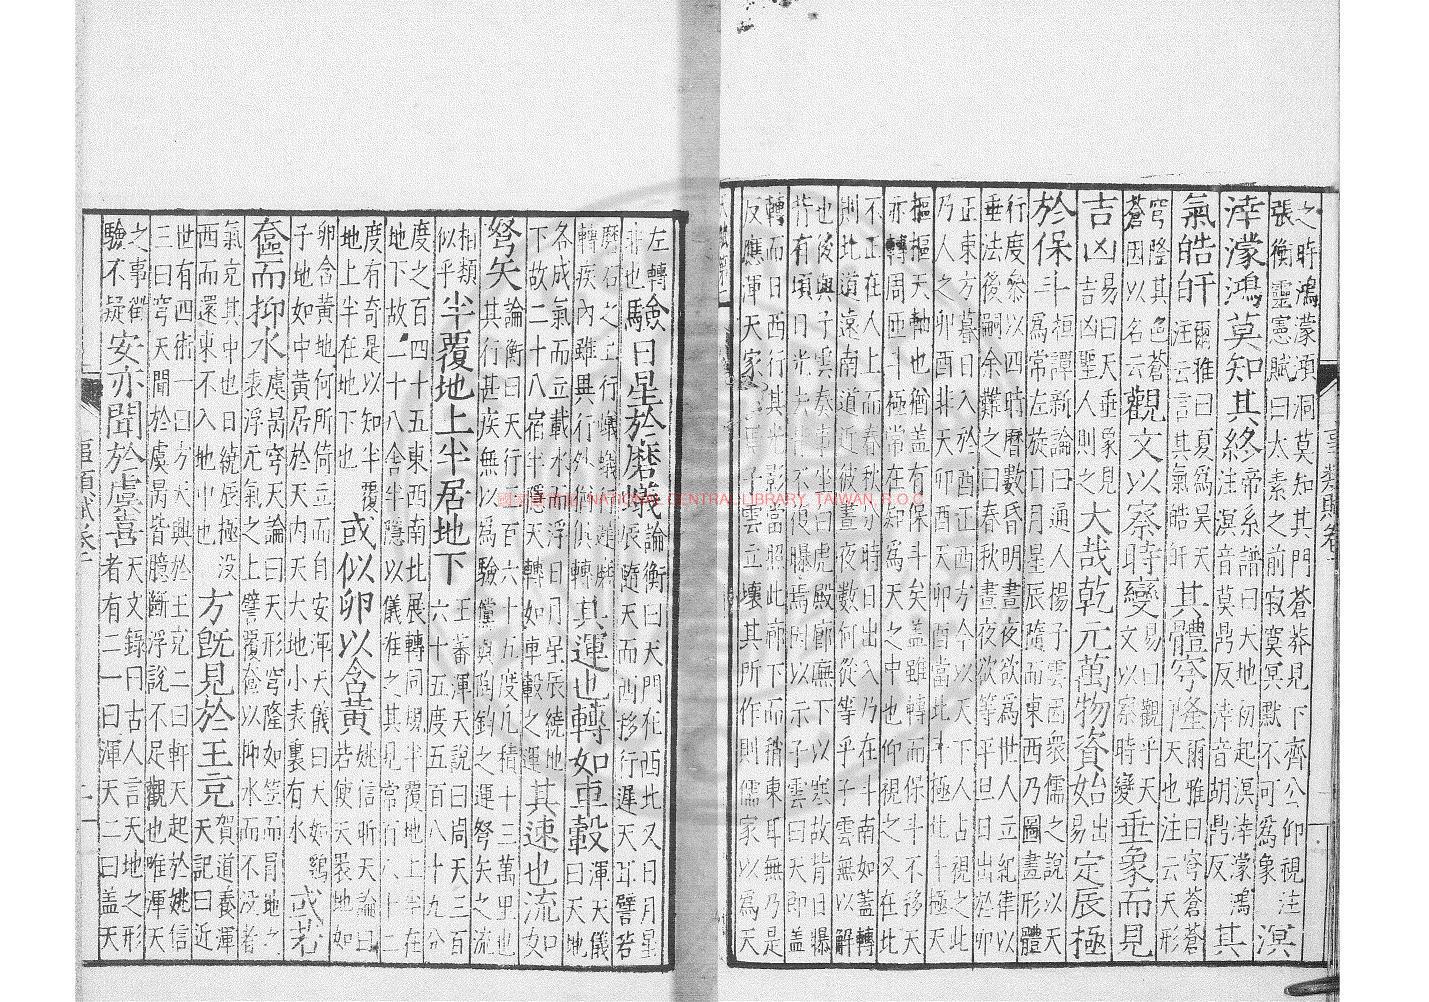 事類賦卷一
之時鴻濛澒洞莫知其門蒼莽見下齊公仰視注
張衡靈憲賦曰太素之前寂寞冥默不可為象溟
涬濛鴻莫知其終帝系譜曰天地初起溟涬濛鴻
注溟音莫鼎反涬音胡鼎反其
氣皓旰爾雅曰夏為昊天
注云言其氣皓旰其體穹窿爾雅曰穹蒼蒼
天也注云天形
穹隆其色蒼
蒼因以名云觀文以察時變易曰觀乎天
文以察時變垂象而見
吉凶易曰天垂象見
吉凶聖人則之大哉乾元萬物資始出
易定辰極
於保斗桓譚新論曰通人揚子雲因衆儒之說以天
為常左旋日月星辰隨而東西乃圖畫形體
行度參以四時曆數昏明晝夜欲為世人立紀律以
垂法後嗣余難之曰春秋晝夜欲等平旦日出於卯
正東方暮日入於酉正西方今以天下人占視之此
乃人之卯酉非天卯酉天卯酉當北斗極北斗極天
樞樞天軸也猶蓋有保斗矣蓋雖轉而保斗不移天
亦轉周匝斗極常在知為天之中也仰視之又在北
不正在人上而春秋分時日出入乃在斗南如蓋轉
則北道遠南道近彼晝夜數何從等乎子雲無以解
也後與子雲奏事坐白虎殿廊廡下以寒故背日曝
背有頃日光去背不復曝焉因以示子雲曰天即蓋
轉而日西行其光影當照此廊下而稍東耳無乃是
反應渾天家法焉子雲立壞其所作則儒家以為天
左轉
非也驗日星於磨蟻論衡曰天門在西北又日月星
辰隨天而西移行遲天耳譬若
磨石之上行蟻蟻行遲磨
轉疾內雖異行外猶俱轉其運也轉如車轂渾天儀
曰天地
各成氣而立載水而浮日月星辰繞地
下故二十八宿半隱天轉如車轂之運其速也流如
弩矢論衡曰天行三百六十五度凡積十三萬里也
其行甚疾無以為驗儻與陶鈞之運弩矢之流
相類
似乎半覆地上半居地下王蕃渾天說曰周天三百
六十五度五百八十九分
度之百四十五東西南北展轉同規半覆地上半在
地下故二十八舍半隱以儀准之其見常百八十二
度有奇是以知半覆
地上半在地下也或似卵以含黃姚信昕天論曰
若使天裹地如
卵含黃地何所倚立而自安渾天儀曰天如雞
子地如中黃居於天內天大地小表裏有水或若
奩而抑水虞昺穹天論曰天形穹隆如笠而冒地之
表浮元氣之上譬覆奩以抑水而不沒者
氣充其中也日繞辰極沒
西而還東不入地中也方旣見於王充賀道養渾
天記曰近
世有四術一曰方天興於王充二曰軒天起於姚信
三曰穹天聞於虞昺皆臆斷浮說不足觀也唯渾天
之事徵
驗不疑安亦聞於虞喜天文錄曰古人言天地之形
者有二一曰渾天二曰蓋天
事類賦卷一
國家圖書館 NATIONAL CENTRAL LIBRARY, TAIWAN, R.O.C.